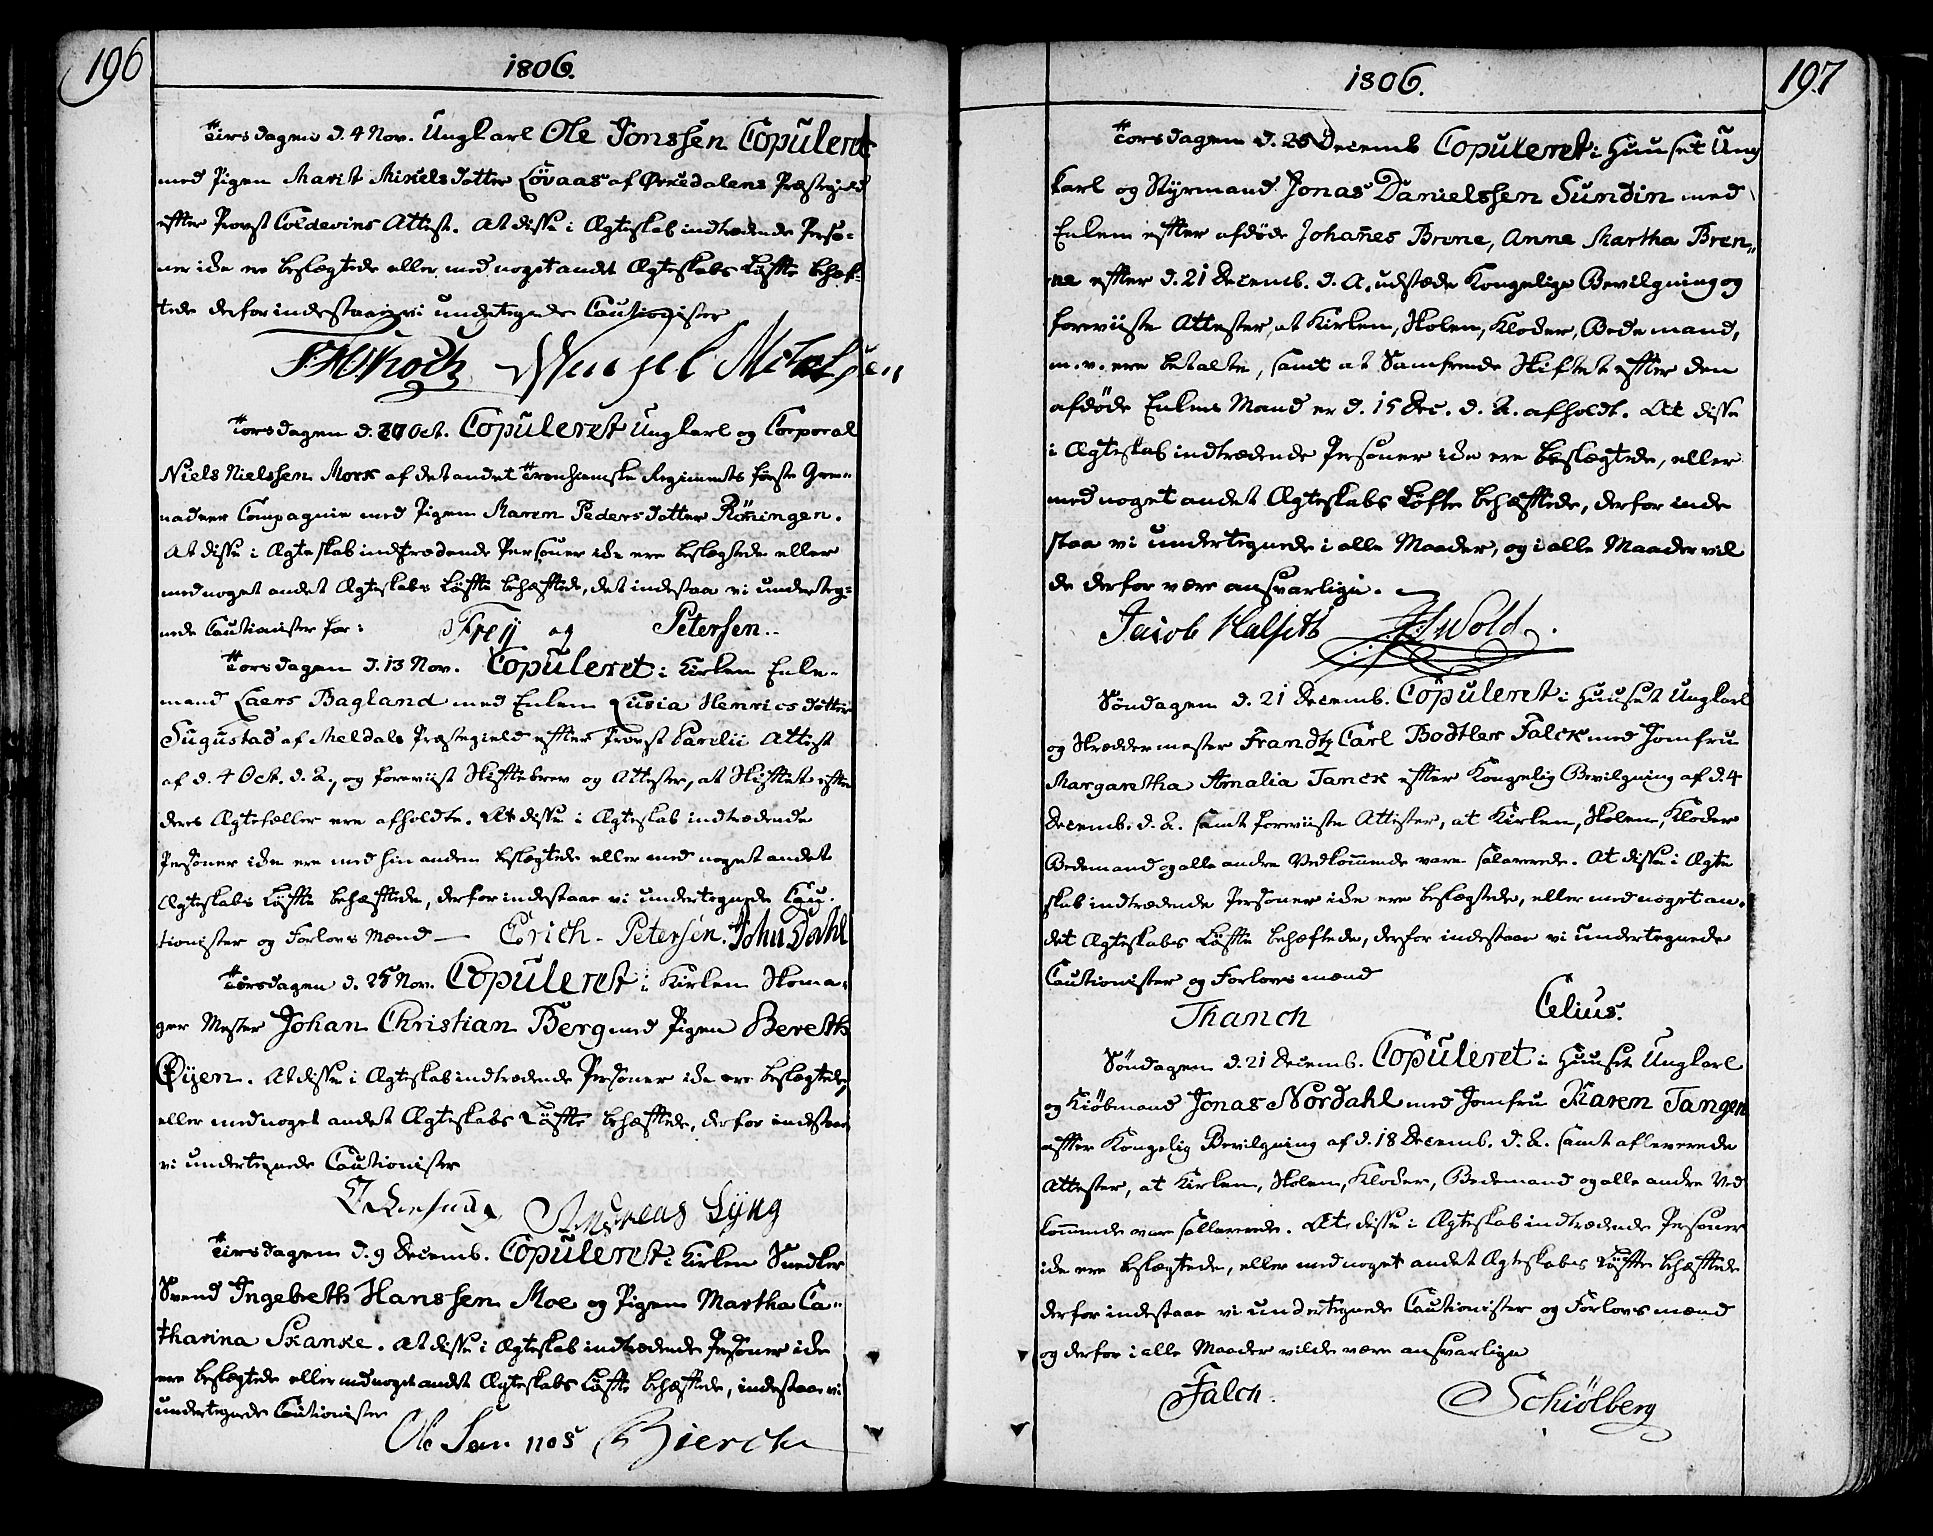 196
1806.
Tirsdagen d. 4 Nov. Ungkarl Ole Jonssen Copuleret
med Pigen Marit Mikelsdotter Lövaas af Ørkedalens Præstegield
effter Provst Coldevins Attest. At disse i Ægteskab indtrædende Perso-
ner ikke ere beslægtede eller med noget andt Ægteskabs Løffte behæf-
tede derfor indestaae vi undertegnede Cautionister
Torsdagen d. Oct. Copuleret Ungkarl og Corporal
Niels Nielssen Mork af det andet Tronhiemske Regiments første Gre-
nadeer Compagnie med Pigen Maren Pedersdotter Rönningen.
At disse i Ægteskab indtrædende Personer ikke ere beslægtede eller
med noget andet Ægteskabs Løffte behæfftede, det indestaa vi underteg-
nede Cautionister for: Frey og Petersen..
Torsdagen d. 13 Nov. Copuleret i Kirken Enke-
mand Laers Bagland med Enken Lusia Henricsdotter
Sugustad af Meldals Præstegield effter Provst Parelii Attest
af d. 4 Oct. d. A., og foreviist Skifftebrev og Attester, at Skifftet effter
deres Ægtefæller ere afholdte. At disse i Ægteskab indtrædende
Personer ikke ere med hinanden beslægtede eller med noget andet
Ægteskabs Løffte behæfftede, derfor indestaae vi undertegnede Cau-
tionister og Forlovs Mænd — Erich Petersen. John Dahl
Torsdagen d. 25 Nov. Copuleret i Kirken Skoma-
ger Mester Johan Christian Berg med Pigen Bereth
Øyen. At disse i Ægteskab indtrædende Personer ikke ere beslægtede
eller med noget andet Ægteskabs Løffte behæfftede, derfor indestaae
vi undertegnede Cautionister
Andreas Lÿng
Tirsdagen d. 9 Decemb. Copuleret i Kirken Snedker
Svend Ingebreth Hanssen Moe og Pigen Martha Ca-
tharina Skanke. At disse i Ægteskab indtrædende Personer ikke
ere beslægtede eller med noget andet Ægteskabs Løffte behæfftede, indestaae vi
undertegnede Cautionister
Bierch
197
1806.
Torsdagen d. 25 Decemb Copuleret i Huuset Ung
karl og Styrmand Jonas Danielssen Sundin med
Enken effter afdøde Johannes Brene, Anne Martha Bren-
ne effter d. 21 Decemb. d. A. udstæde Kongelige Bevilgning og
foreviiste Attester, at Kirken, Skolen, Kloder, Bedemand,
m. v. ere betalte, samt at Samfrende Skiftet effter den
afdöde Enkens Mand er d. 15 Dec. d. A. afholdt. At disse
i Ægteskab indtrædende Personer ikke ere beslægtede, eller
med noget andet Ægteskabs Løfte behæfftede, derfor inde
staa vi undertegnede i alle Maader, og i alle Maader vil
de derfor være ansvarlige.
Jacob Halseth Wold.
Søndagen d. 21 Decemb. Copuleret i Huuset Ungkarl
og Skreddermester Frandtz Carl Bodtler Falck med Jomfru
Margaretha Amalia Tanck effter Kongelig Bevilgning af d. 4
Decemb. d. A. samt foreviiste Attester, at Kirken, Skolen, Kloder
Bedemand og alle andre Vedkommende vare salarerede. At disse i Ægte
skab indtrædende Personer ikke ere beslægtede, eller med noget an-
det Ægteskabs Løffte behæftede, derfor indestaae vi undertegnede
Cautionister og Forlovsmænd
Thanch Celius.
Söndagen d. 21 Decemb. Copuleret i Huuset Ungkarl
og Kiöbmand Jonas Nordahl med Jomfru Karen Tangen
effter Kongelig Bevilgning af d. 18 Decemb. d. A. samt afleverede
Attester, at Kirken, Skolen, Kloder, Bedemand og alle andre Ved
kommende vare sallarerede. At disse i Ægteskab indtrædende Personer
ikke ere beslægtede, eller med noget andet Ægteskabs Løffte behæfftede
derfor indestaae vi undertegnede Cautionister og Forlovsmænd
og derfor i alle Maader vilde være ansvarlige
Falch. Schiölberg